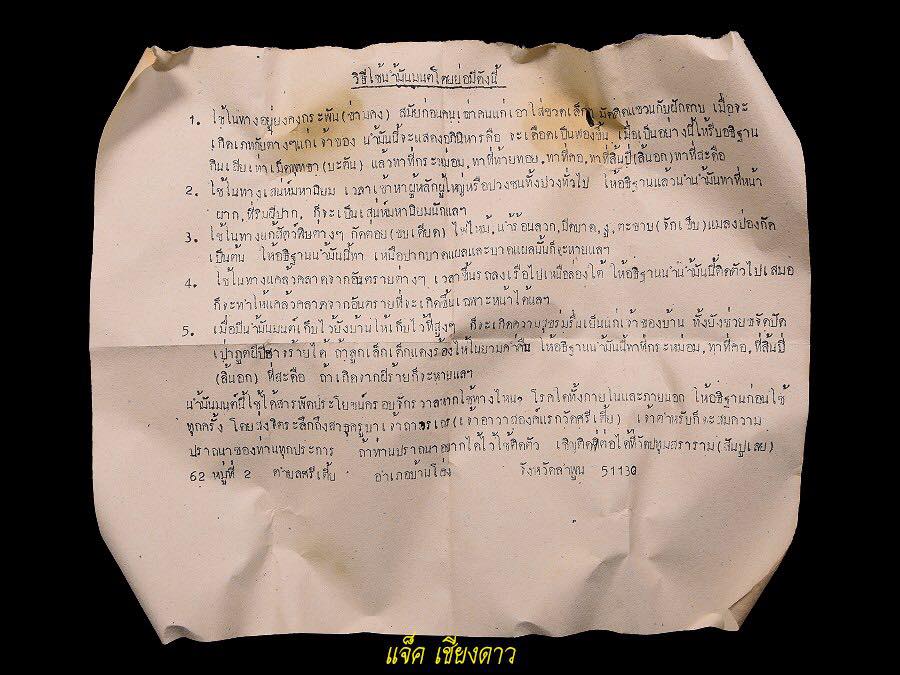 วิธีใช้น้ำมันมนต์โดยย่อมีดังนี้
1. ใช้ในทางอยู่ยงคงกระพัน(ข่ามคง) สมัยก่อนคนเฒ่าคนแก่เอาใส่ขวดเล็กๆ มัดติดแขวนกับฝักดาบ เมื่อจะ
เกิดเภทภัยต่างๆแก่เจ้าของ น้ำมันนี้จะแสดงอภินิหารคือ จะเดือดเป็นฟองขึ้น เมื่อเป็นอย่างนี้ให้รีบอธิฐาน
กินเสียเท่าเม็ดพุทธา(บะตัน) แล้วทาที่กระหม่อม,ทาที่ท้ายทอย,ทาที่คอ,ทาที่ลิ้นปี่(ลิ้นอก)ทาที่สะดือ
2. ใช้ในทางเสน่ห์มหานิยม เวลาเข้าหาผู้หลักผู้ใหญ่หรือปวงชนทั้งปวงทั่วไป ให้อธิฐานแล้วนำน้ำมันทาที่หน้า
ผาก,ที่ริมฝีปาก, ก็จะเป็นเสน่ห์มหานิยมนักแลฯ
3. ใช้ในทางแก้พิษต่างๆ กัดต่อย(ขบเตี๊ยด) ไฟไหม้,น้ำร้อนลวก,มีดบาด,งู,ตะขาบ(จักเข็บ)แมลงป่องกัด
เป็นต้น ให้อธิฐานน้ำมันนี้ทา เหนือปากบาดแผลและบาดแผลนั้นก็จะหายแลฯ
4. ใช้ในทางแคล้วคลาดจากอันตรายต่างๆ เวลาขึ้นรถลงเรือไปเหนือล่องใต้ ให้อธิฐานนำน้ำมันนี้ติดตัวไปเสมอ
ก็จะทำให้แคล้วคลาดจากอันตรายที่จะเกิดขึ้นเฉพาะหน้าได้แลฯ
5. เมื่อมีน้ำมันมนต์เก็บไว้ยังบ้านให้เก็บไว้ที่สูงๆ ก็จะเกิดความสุขร่มรื่นเย็นแก่เจ้าของบ้าน ทั้งยังช่วยขจัดปัด
เป่าภูตผีปีศาจร้ายได้ ถ้าลูกเล็กเด็กแดงร้องไห้ในยามค่ำคืน ให้อธิฐานน้ำมันนี้ทาที่กระหม่อม,ทาที่คอ,ที่ลิ้นปี่
(ลิ้นอก) ที่สะดือ ถ้าเกิดจากผีร้ายก็จะหายแลฯ
น้ำมันมนต์นี้ใช้ได้สารพัดประโยชน์ครอบจักรวาลหากใช้ทางไหน? โรคใดทั้งภายในและภายนอก ให้อธิฐานก่อนใช้
ทุกครั้ง โดยส่งจิตระลึกถึงสาธุครูบาเจ้า (เจ้าอาวาสองค์แรกวัดศรีเตี้ย) เจ้าตำหรับก็จะสมความ
ปราถนาของท่านทุกประการ ถ้าท่านปราถนาอยากได้ไว้ใช้ติดตัว เชิญติดต่อได้ที่วัดปทุมสราราม(สันปูเลย)
62 หมู่ที่ 2 ตำบลศรีเตี้ย อำเภอบ้านโฮ่ง จังหวัดลำพูน 51130
แจ็ค เชียงดาว